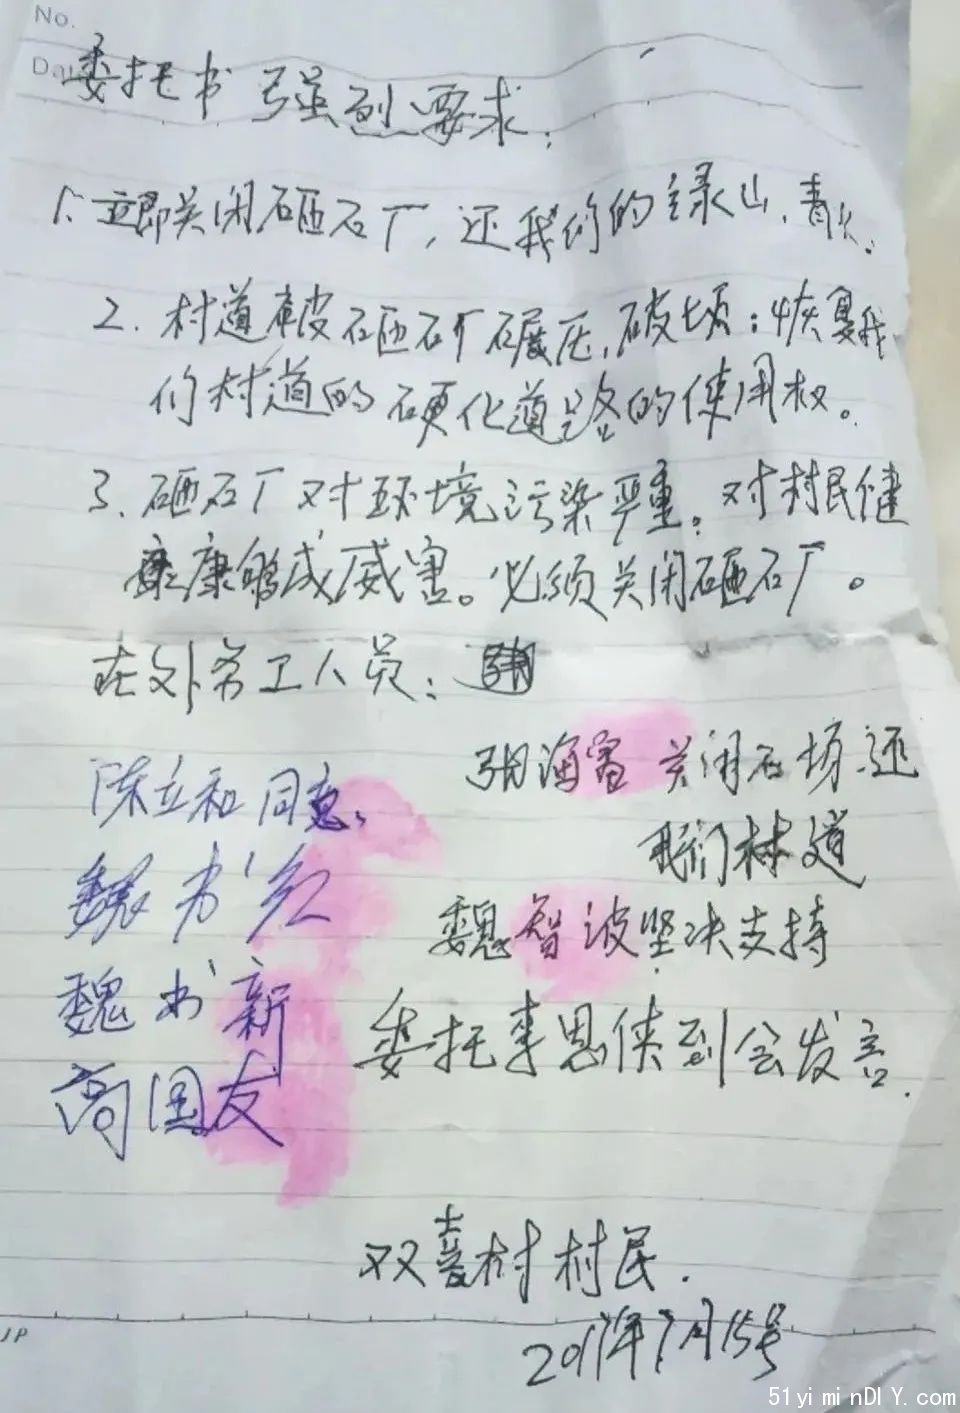 No.
Da
委托书 强烈要求：
1、立即关闭硒石厂，还我们的绿山、青水。
2.村道被硒石厂碾压，破坏；恢复我
们村道的硬化道路的使用权。
3、硒石厂对环境污染严重。对村民健
康够成威害。必须关闭硒石厂。
在外务工人员：
张海 关闭石场.还
我们村道
陈立和同意、
魏书红
魏智波坚决支持
魏书新
委托李恩侠到会发言.
高国友
双喜村村民.
7月15号
JP
51yiminDIY.com